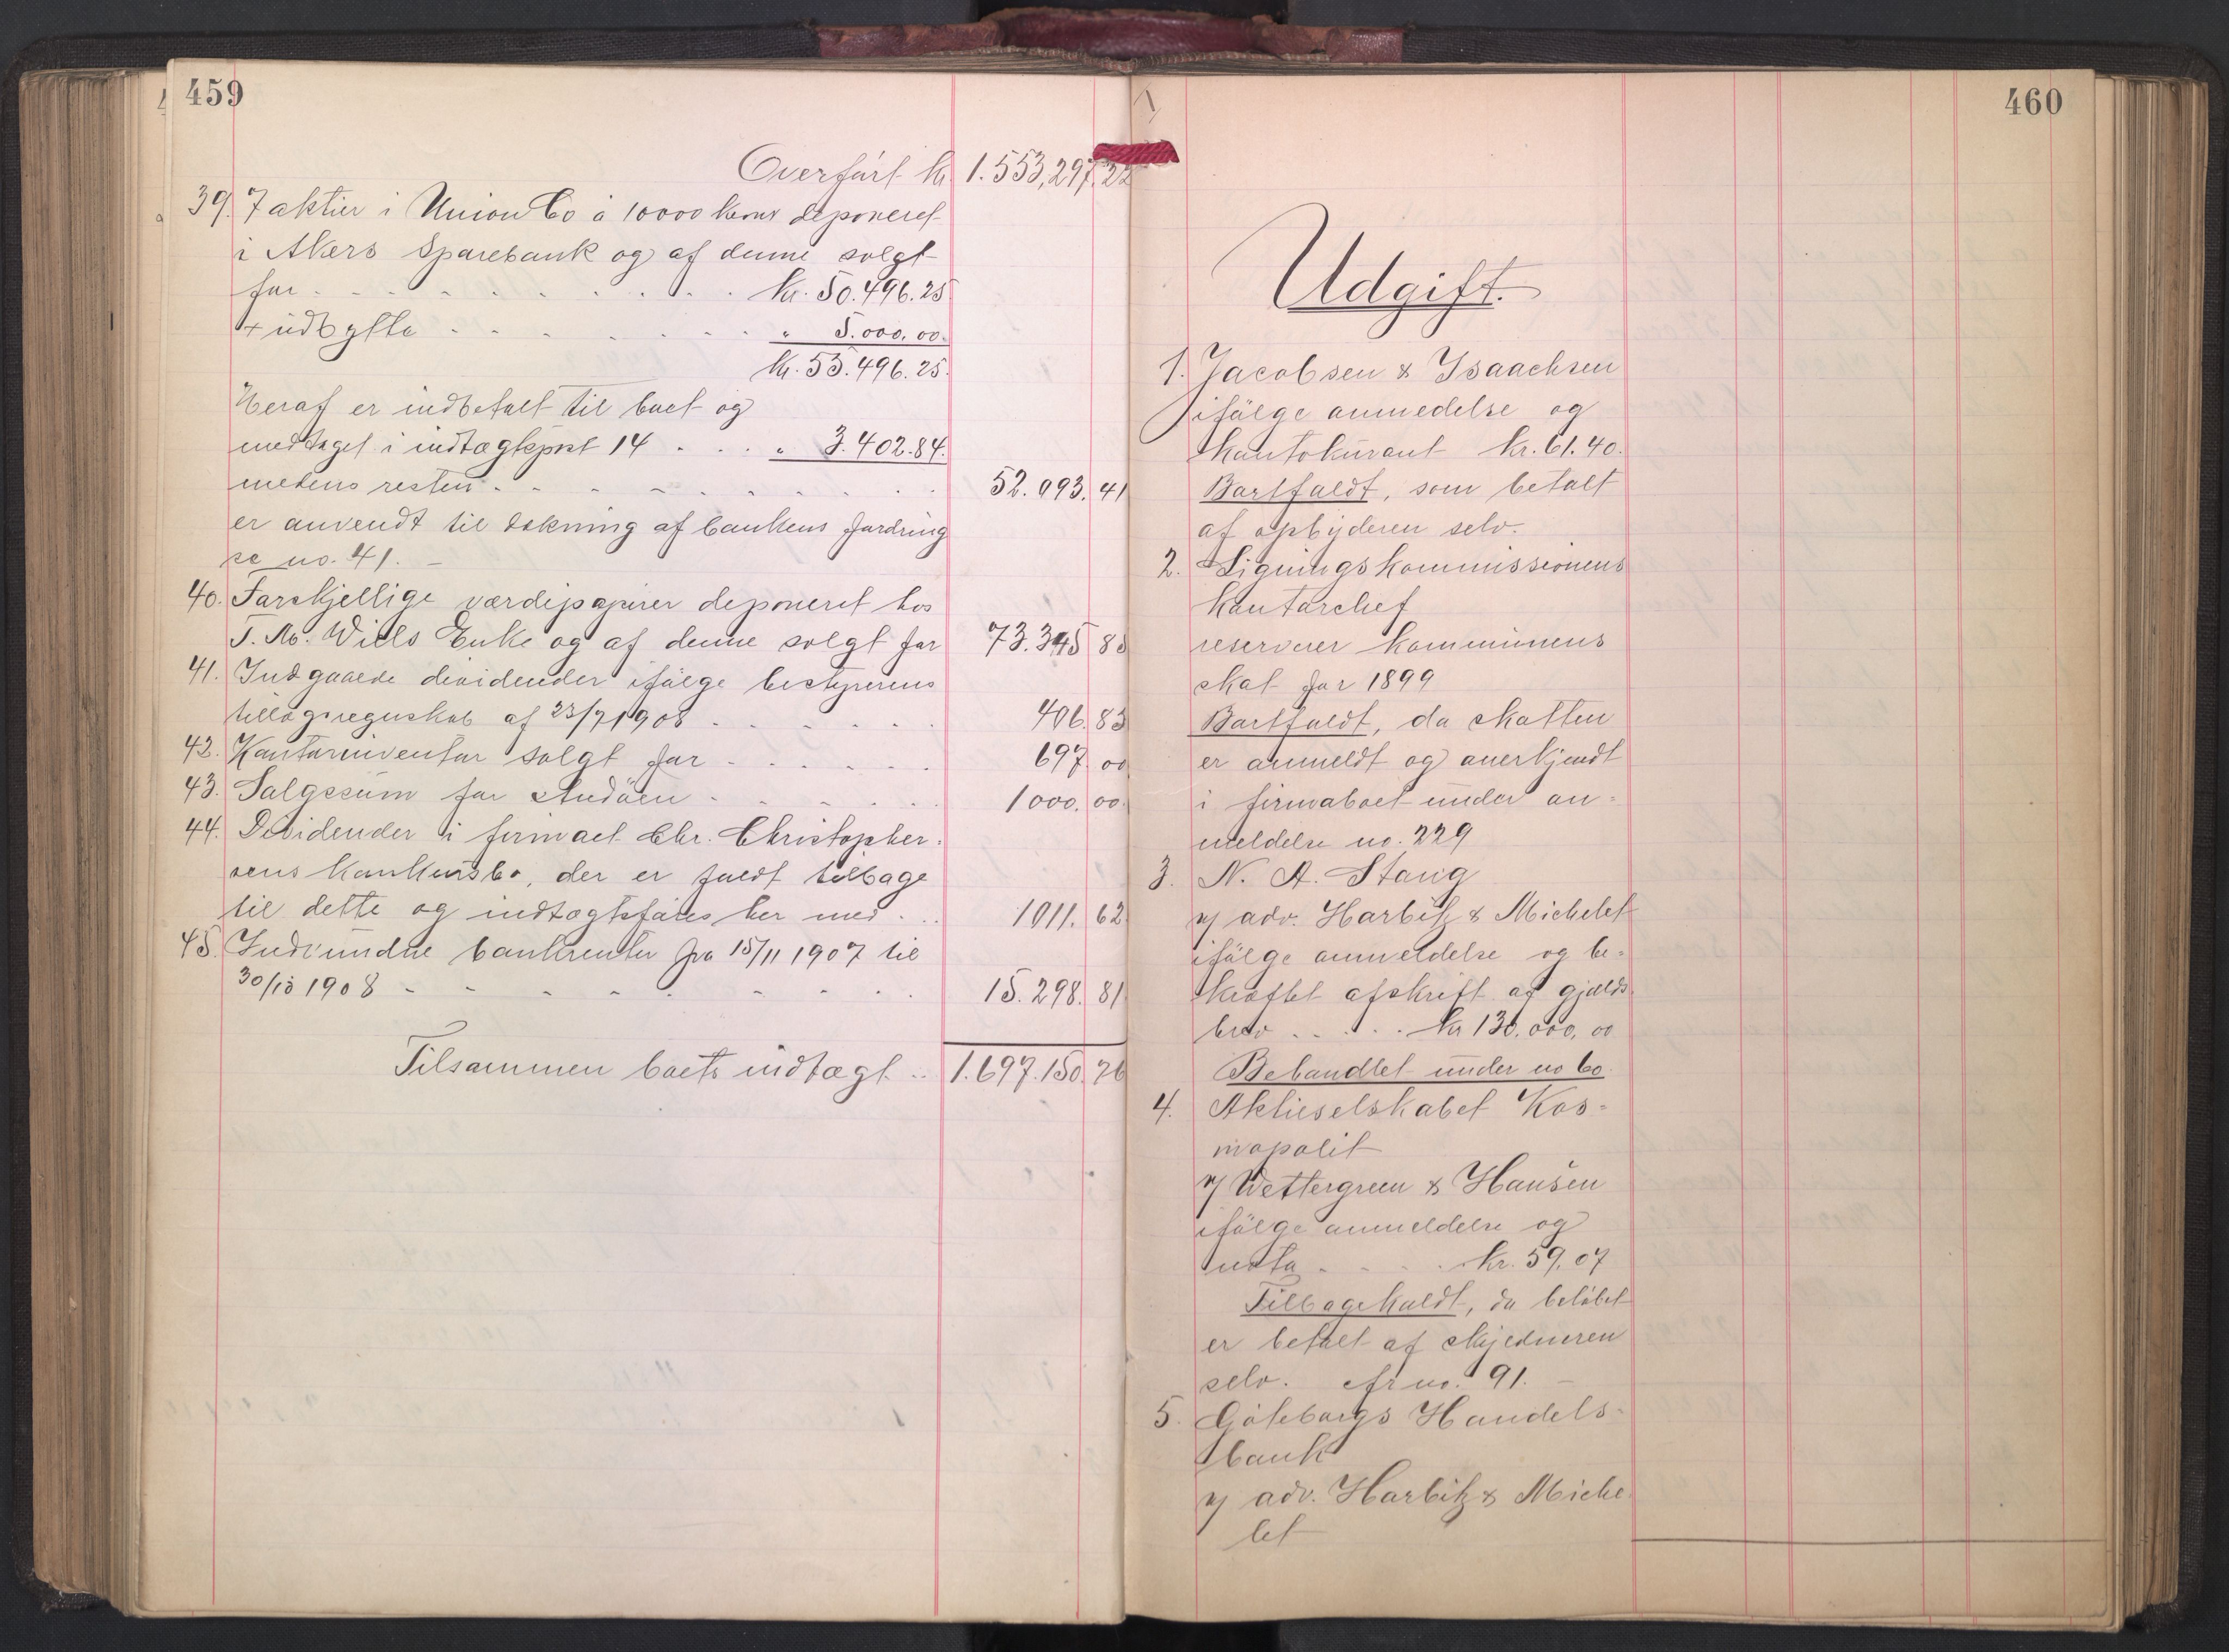 459
Overført kr. 1.553,297.22
39. 7 aktier i Union Co à 10000 kroner deponeret
i Akers Sparebank og af denne solgt
for . . . . . kr. 50.496.25
+ udbytte . . . . . " 5.000.00.
kr. 55.496.25.
Heraf er indbetalt til boet og
medtaget i indtægtspost 14 . . . " 3.402.84.
medens resten . . . . . 52.093.41
er anvendt til dækning af bankens fordring
se no. 41. –
40. Forskjellige værdipapirer deponeret hos
T. M. Wiels Enke og af denne solgt for 73.345 85
41. Indgaaede dividender ifølge bestyrerens
tillægsregnskab af 23/7 1908 . . . . 406.83
42. Kontorinventar solgt for . . . . . 697 00
43. Salgssum for Andøen . . . . . 1000.00.
44. Dividender i firmaet Chr. Christopher-
sens konkursbo, der er faldt tilbage
til dette og indtægtsføres her med . . 1011.62
45. Indvundne bankrenter fra 15/11 1907 til
30/10 1908 . . . . . 15.298.81
Tilsammen boets indtægt .. 1.697.150.76
460
Udgift.
1. Jacobsen & Isaachsen
ifølge anmedelse og
kontokurant kr. 61.40.
Bortfaldt, som betalt
af opbyderen selv.
2. Ligningskommissionens
kontorchef
reserverer kommunens
skat for 1899
Bortfaldt, da skatten
er anmeldt og anerkjendt
i firmaboet under an-
meldelse no. 229
3. N. A. Stang
v/ adv. Harbitz & Michelet
ifølge anmeldelse og be-
kræftet afskrift af gjælds-
brev . . . . kr 130.000,00
Behandlet under no 60.
4. Aktieselskabet Kos-
mopolit
v/ Wettergreen & Hansen
ifølge anmeldelse og
nota . . . . kr. 59.07
Tilbagekaldt, da beløbet
er betalt af skyldneren
selv. cfr no. 91. –
5. Göteborgs Handels-
bank
v/ adv. Harbitz & Miche-
let